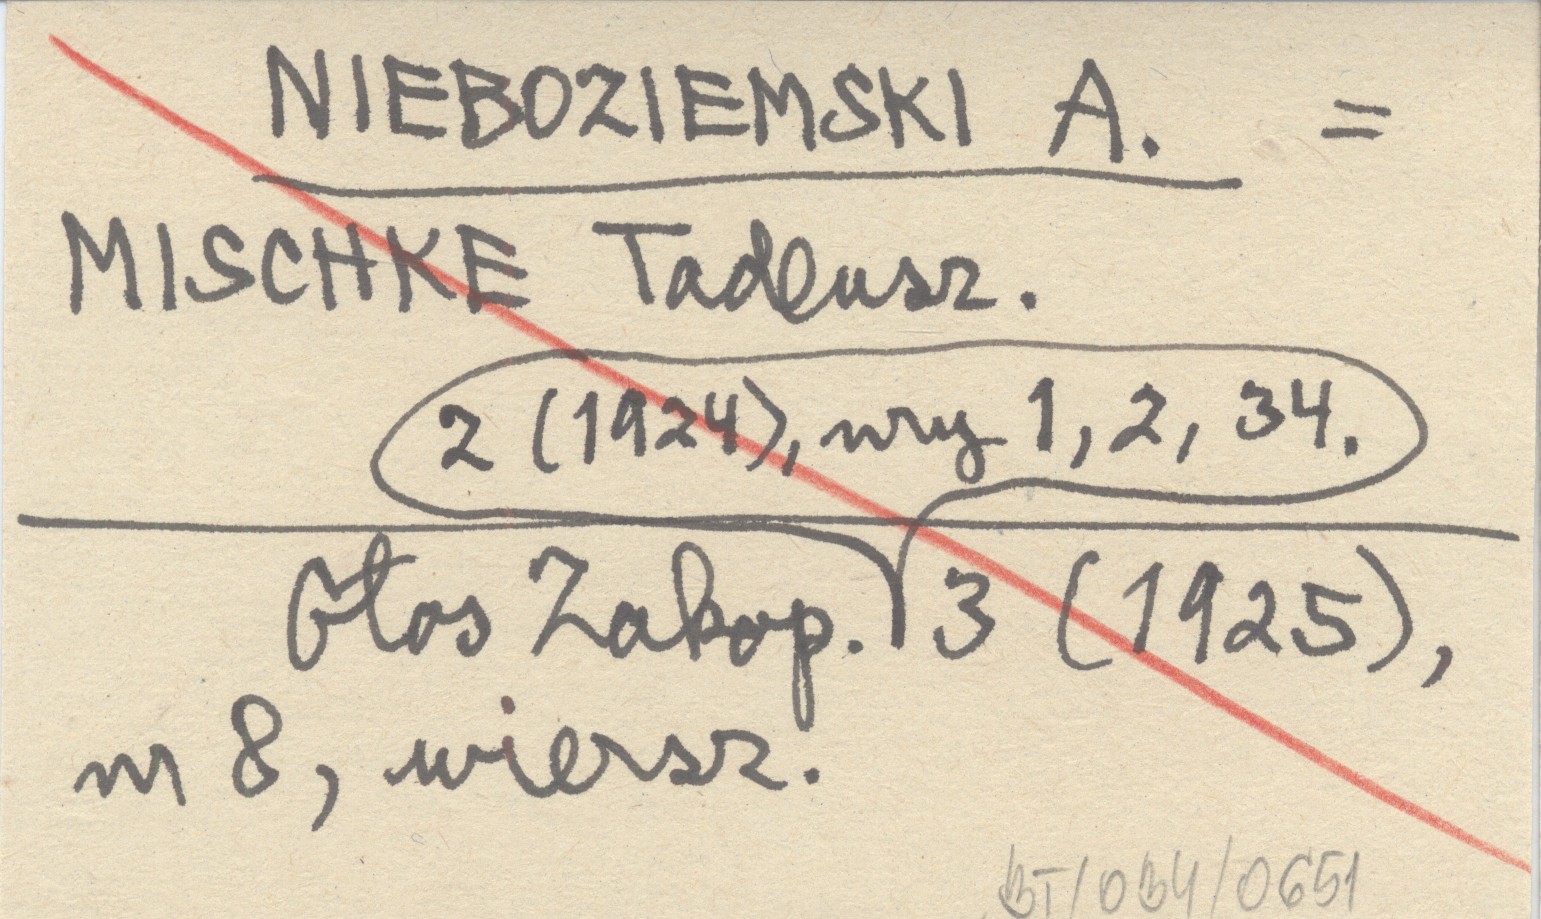 NIEBOZIEMSKI A. =
MISCHKE Tadeusz.
2 (1924), nry 1, 2, 34.
Głos Zakop. 3 (1925),
nr 8, wiersz.
BT/034/0651